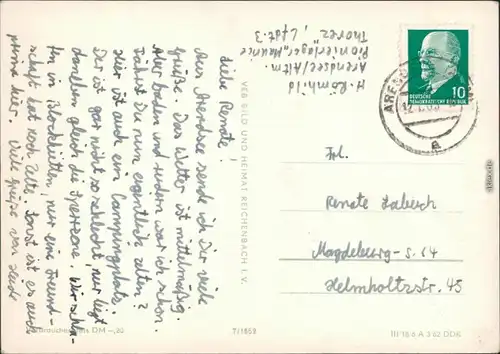 Liebe Renate!
Aus Arendsee sende ich Dir viele
Grüße. Das Wetter ist mittelmäßig.
Aber baden und rudern war ich schon.
Fährst Du nun eigentlich zelten?
Hier ist auch ein Campingplatz.
Der ist gar nicht so schlecht, nur liegt
daneben gleich die Sperrzone. Wir schla-
fen in Blockhütten, nur eine Freund-
schaft hat noch Zelte. Sonst ist es auch
prima hier. Viele Grüße von Heidi
H. Römhild
Arendsee/Altm.
Pionierlager „Maurice
Thorez“, Lfst. 3
VEB BILD UND HEIMAT REICHENBACH I. V.
DEUTSCHE
DEMOKRATISCHE REPUBLIK
10
Frl.
Renate
Magdeburg-S. 64
Helmholtzstr. 45
DM -,20
T/1852
III/18/6 A 3/62 DDR